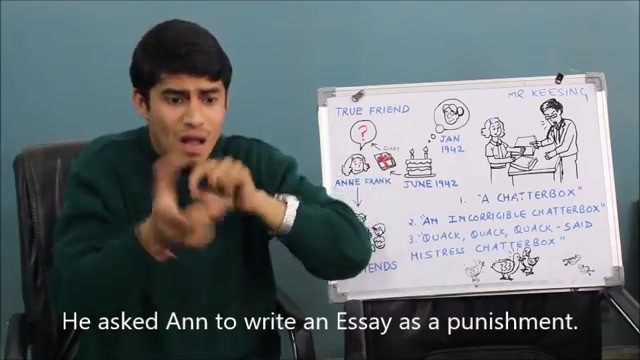 MR. KEESING
TRUE FRIEND
?
DIARY
JAN
1942
ANNE FRANK
JUNE 1942
1. "A CHATTERBOX"
2. "AN INCORRIGIBLE CHATTERBOX"
3. "QUACK, QUACK, QUACK - SAID
MISTRESS CHATTERBOX"
He asked Ann to write an Essay as a punishment.